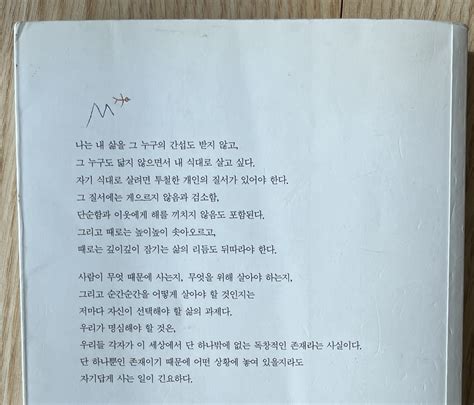 나는 내 삶을 그 누구의 간섭도 받지 않고,
그 누구도 닮지 않으면서 내 식대로 살고 싶다.
자기 식대로 살려면 투철한 개인의 질서가 있어야 한다.
그 질서에는 게으르지 않음과 검소함,
단순함과 이웃에게 해를 끼치지 않음도 포함된다.
그리고 때로는 높이높이 솟아오르고,
때로는 깊이깊이 잠기는 삶의 리듬도 뒤따라야 한다.
사람이 무엇 때문에 사는지, 무엇을 위해 살아야 하는지,
그리고 순간순간을 어떻게 살아야 할 것인지는
저마다 자신이 선택해야 할 삶의 과제다.
우리가 명심해야 할 것은,
우리들 각자가 이 세상에서 단 하나밖에 없는 독창적인 존재라는 사실이다.
단 하나뿐인 존재이기 때문에 어떤 상황에 놓여 있을지라도
자기답게 사는 일이 긴요하다.